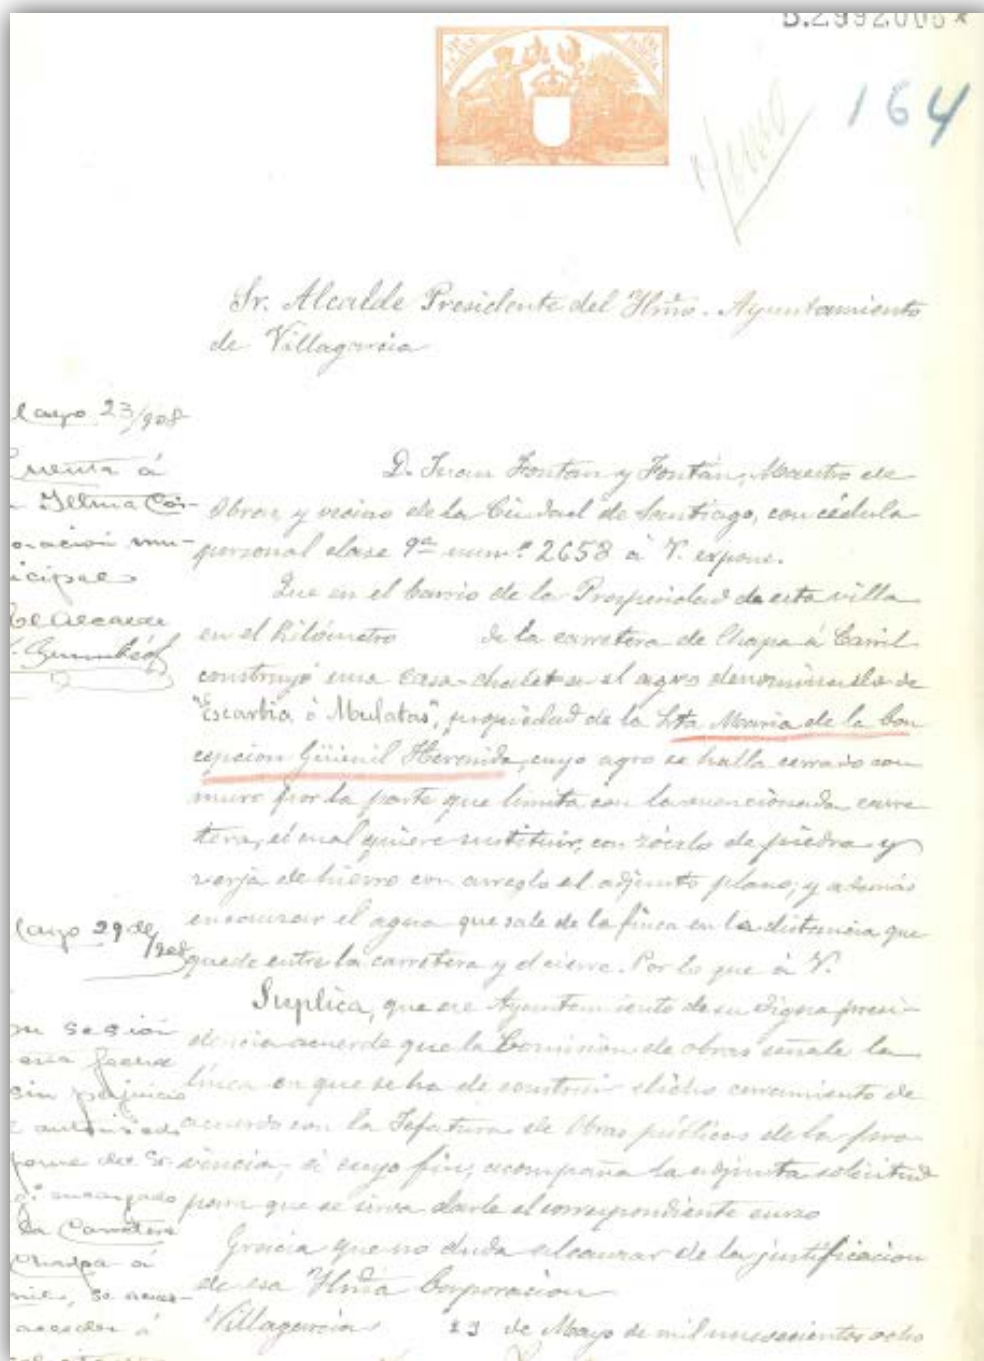 B.2992006*
164
Sr. Alcalde Presidente del Ilmo. Ayuntamiento
de Villagarcia
Mayo 23/908
Cuenta á
Iltma Cor-
poración mu-
nicipal
El Alcalde
D. Juan Fontán y Fontán, Maestro de
Obras, y vecino de la Ciudad de Santiago, con cédula
personal clase 9ª num.º 2658 á V. expone.
Que en el barrio de la Prosperidad de esta villa
en el Kilómetro de la carretera de Chapa á Carril
construyó una casa-chalet en el agro denominado de
"Escarbia ó Mulatas", propiedad de la Srta María de la Con
cepción Güimil Hermida, cuyo agro se halla cerrado con
muro por la parte que limita con la mencionada carre
tera, el cual quiere sustituir, con zócalo de piedra y
verja de hierro con arreglo al adjunto plano; y además
encauzar el agua que sale de la finca en la distancia que
quede entre la carretera y el cierre. Por lo que á V.
Suplica, que ese Ayuntamiento de su digna presi-
dencia acuerde que la Comisión de obras señale la
línea en que se ha de construir dicho cerramiento de
acuerdo con la Jefatura de Obras públicas de la pro-
vincia, á cuyo fin, acompaña la adjunta solicitud
para que se sirva darle el correspondiente curso
Gracia que no duda alcanzar de la justificacion
de esa Ilma Corporacion
Villagarcia 23 de Mayo de mil novecientos ocho
Mayo 29 de
1908
En sesión
esta fecha
sin perjuicio
autorizado
forme del Sr.
encargado
la Carretera
Chapa á
se acuer-
acceder á